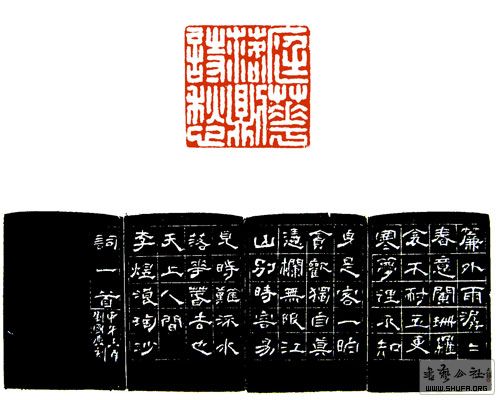 簾外雨潺〻
春意闌珊羅
衾不耐五更
寒夢裡不知
身是客一晌
貪歡獨自莫
憑欄無限江
山別時容易
見時難流水
落華春去也
天上人間
李煜浪淘沙
詞一首
WWW.SHUFA.ORG